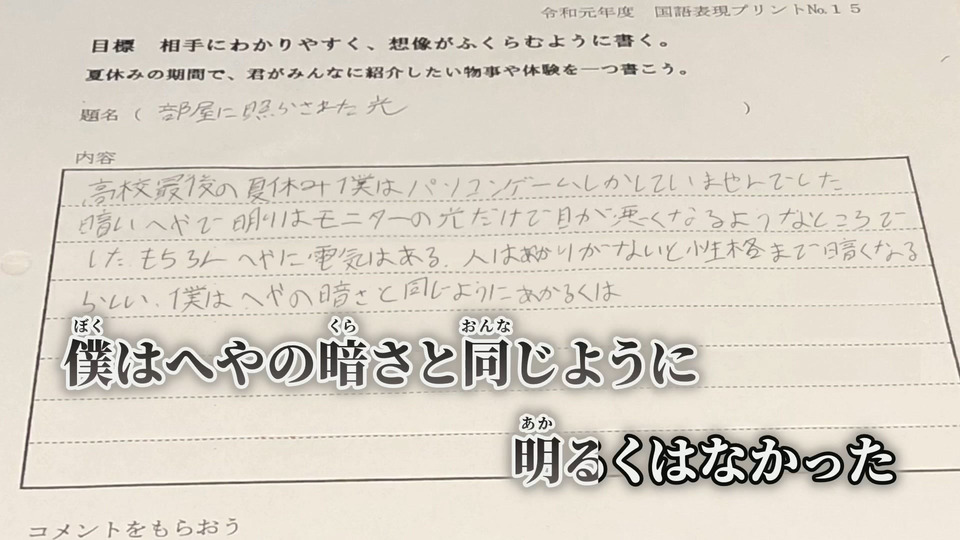 令和元年度 国語表現プリントNo.15
目標 相手にわかりやすく、想像がふくらむように書く。
夏休みの期間で、君がみんなに紹介したい物事や体験を一つ書こう。
題名（ 部屋に照らされた光 ）
内容
高校最後の夏休み僕はパソコンゲームしかしていませんでした
暗いへやで明りはモニターの光だけで目が悪くなるようなところで
した もちろんへやに電気はある、人はあかりがないと性格まで暗くなる
らしい、僕はへやの暗さと同じようにあかるくは
ぼく くら おんな
僕はへやの暗さと同じように
あか
明るくはなかった
コメントをもらおう